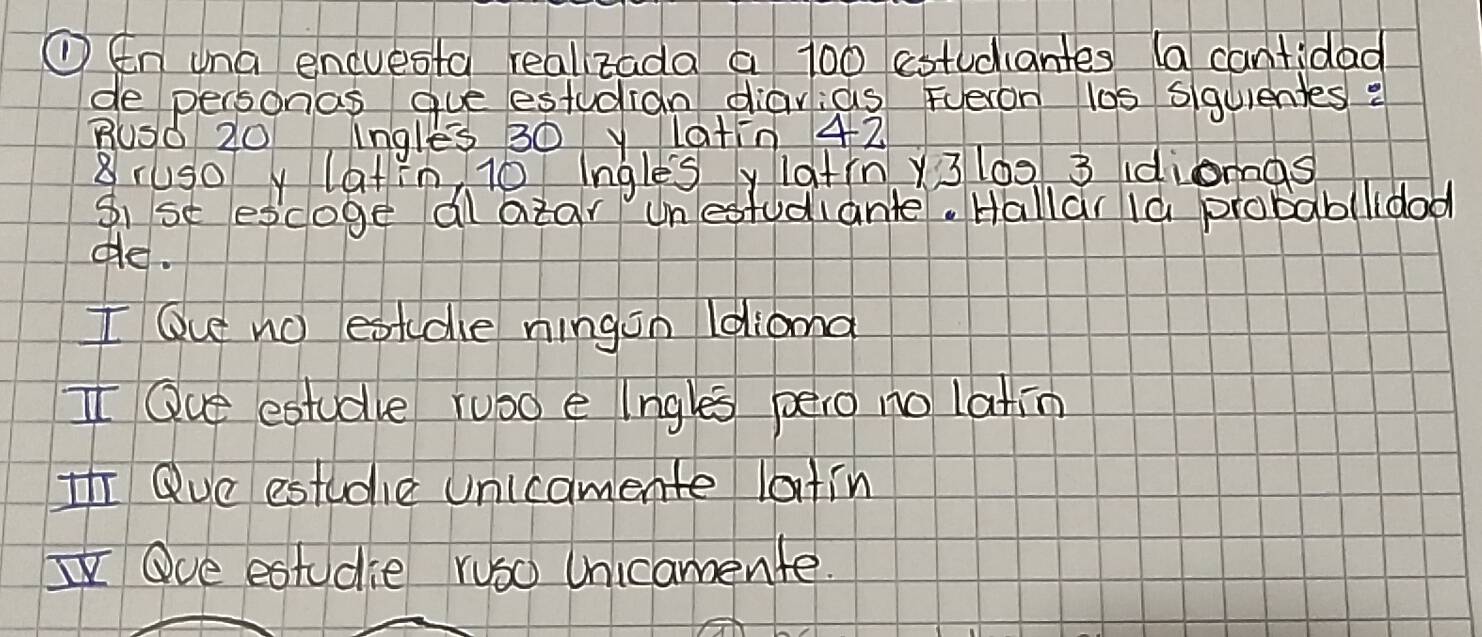 ① En una encuesta realizada a 100 estudiantes la cantidad
de personas que estudian diarias Fueron los siguientes:
Ruso 20 Inglés 30 y latín 42
8 ruso y latín, 10 Inglés y latín y 3 los 3 idiomas
Si se escoge al azar un estudiante. Hallar la probabilidad
de.
I Que no estudie ningún Idioma
II Que estudie ruso e Inglés pero no latín
III Que estudie unicamente latín
IV Que estudie ruso Unicamente.